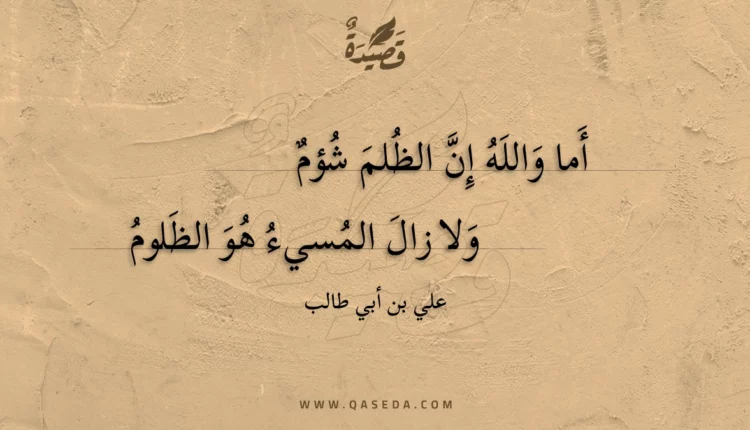 قَصِيدَةٌ
أَما وَاللَهُ إِنَّ الظُلمَ شُؤمٌ
وَلا زالَ المُسيءُ هُوَ الظَلومُ
علي بن أبي طالب
WWW.QASEDA.COM